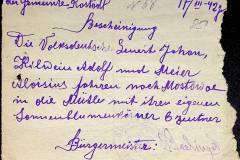 der Gemeinde-Rastadt № 68 17/III-42 J.
Bescheinigung
Die Volksdeutsche Senert Johan,
Hilwein Adolf und Meier
Aloisius fahren noch Mostowoe
in die Mühle mit ihren eigenen
Sonnenblumenkörner 6 zentner
Bürgermeister: